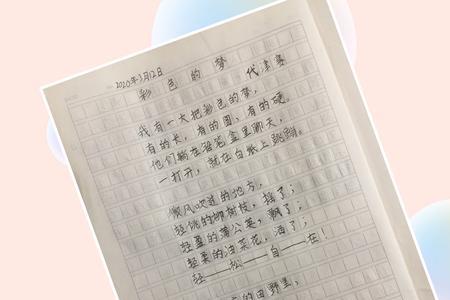 2020年3月12日
彩色的梦 代
我有一大把彩色的梦,
有的长,有的圆,有的硬。
他们躺在铅笔盒里聊天,
一打开,就在白纸上跳蹦。
微风吹过的地方,
轻俏的柳树枝,摇了;
轻盈的蒲公英,飘了;
轻柔的油菜花,洒了;
轻——松——自——在!
的田野里,